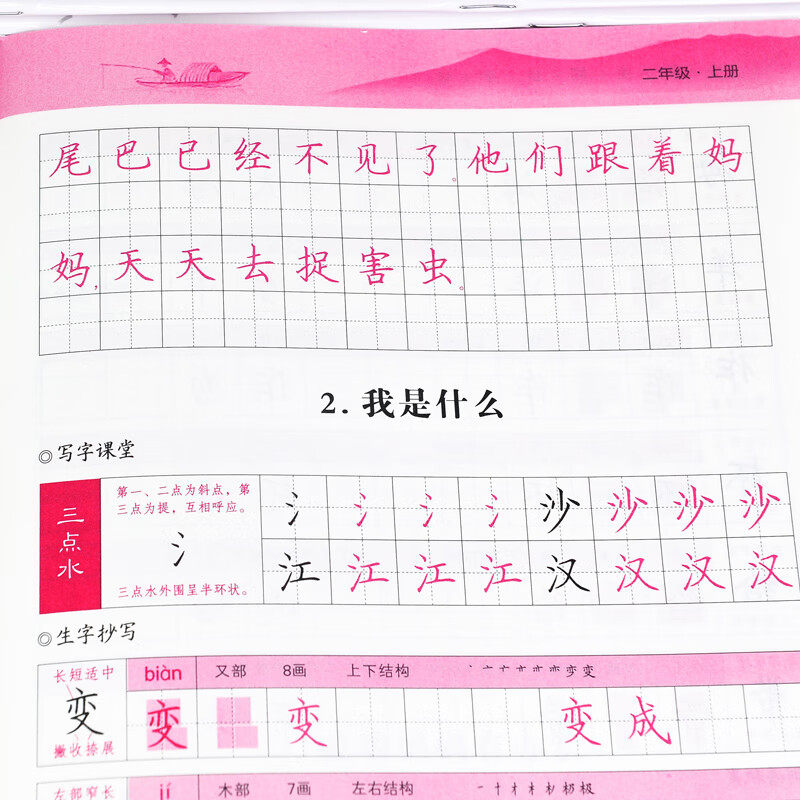 二年级·上册
尾巴已经不见了。他们跟着妈
妈,天天去捉害虫。
2.我是什么
◎写字课堂
三点水
第一、二点为斜点,第
三点为提,互相呼应。
氵
三点水外围呈半环状。
氵氵氵氵沙沙沙沙
江江江江汉汉汉汉
◎生字抄写
长短适中
变
撇收捺展
biàn 又部 8画 上下结构
变 变 变成
左部窄长
jí 木部 7画 左右结构